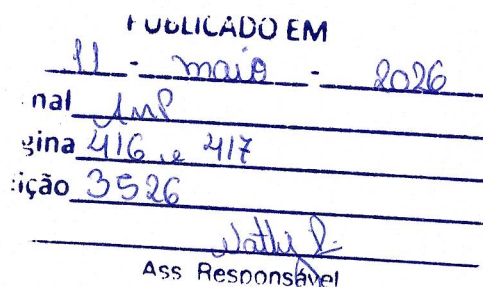 PUBLICADO EM
11 - maio - 2026
nal AMP
gina 416 e 417
ição 3526
Ass Responsável